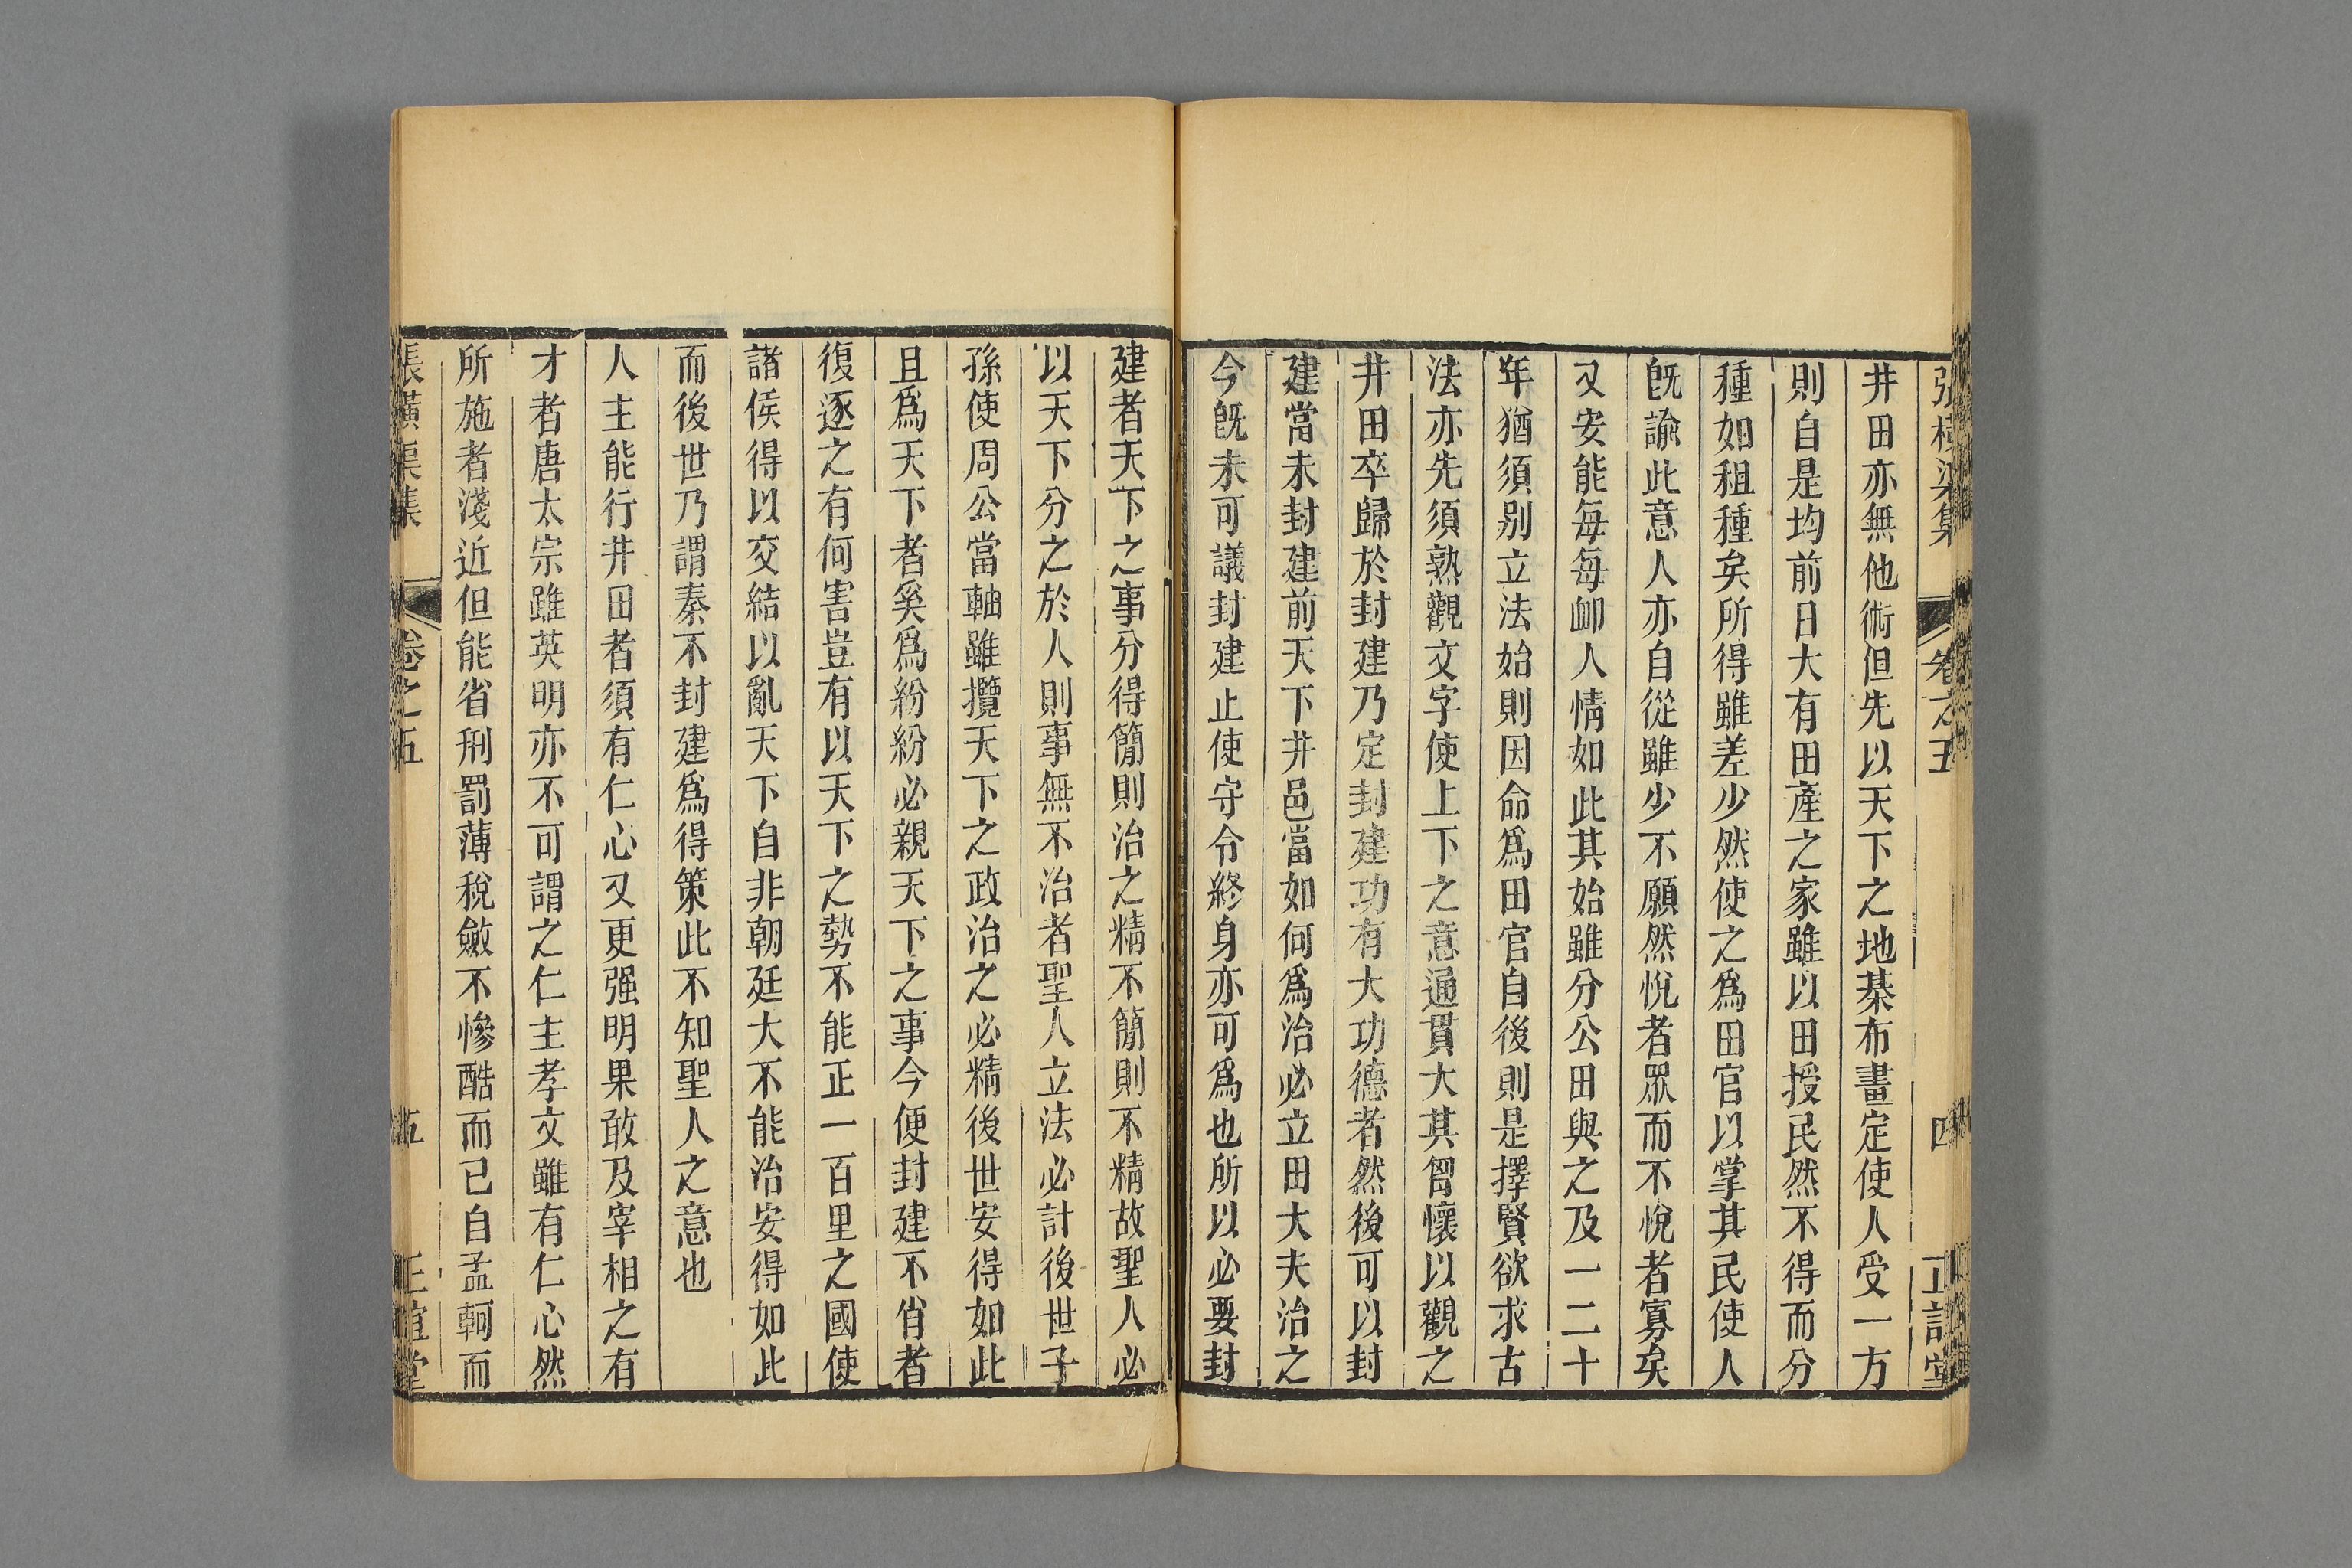 張橫渠集 卷之五 四 正誼堂
井田亦無他術但先以天下之地棊布畫定使人受一方
則自是均前日大有田產之家雖以田授民然不得而分
種如租種矣所得雖差少然使之爲田官以掌其民使人
旣諭此意人亦自從雖少不願然悅者眾而不悅者寡矣
又安能每每卹人情如此其始雖分公田與之及一二十
年猶須別立法始則因命爲田官自後則是擇賢欲求古
法亦先須熟觀文字使上下之意通貫大其胷懷以觀之
井田卒歸於封建乃定封建功有大功德者然後可以封
建當未封建前天下井邑當如何爲治必立田大夫治之
今旣未可議封建止使守令終身亦可爲也所以必要封
建者天下之事分得簡則治之精不簡則不精故聖人必
以天下分之於人則事無不治者聖人立法必計後世子
孫使周公當軸雖攬天下之政治之必精後世安得如此
且爲天下者奚爲紛紛必親天下之事今便封建不肖者
復逐之有何害豈有以天下之勢不能正一百里之國使
諸侯得以交結以亂天下自非朝廷大不能治安得如此
而後世乃謂秦不封建爲得策此不知聖人之意也
人主能行井田者須有仁心又更强明果敢及宰相之有
才者唐太宗雖英明亦不可謂之仁主孝文雖有仁心然
所施者淺近但能省刑罰薄稅斂不慘酷而已自孟軻而
張橫渠集 卷之五 五 正誼堂